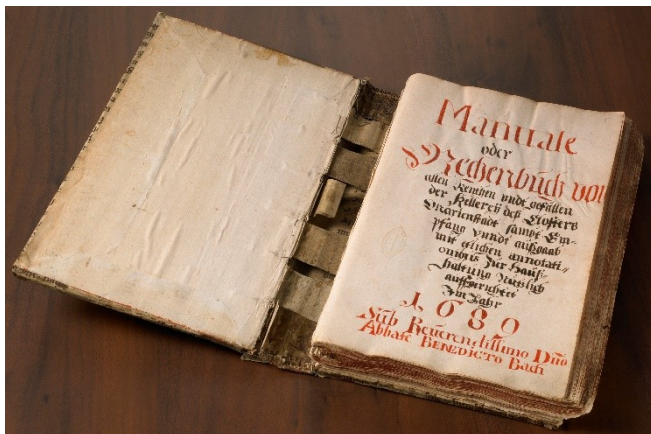 Manuale
oder
Rechenbuch von
allen Renthen undt gefällen
der Kellereÿ deß Closters
Marienstadt sampt Em-
pfang vundt außgaab
mit etlichen annotati-
onibus Zur Hauß-
haltung Nutzlich
auffgerichtet
Im Jahr
1680
Sub Reuerendissimo Dño
Abbate BENEDICTO Bach